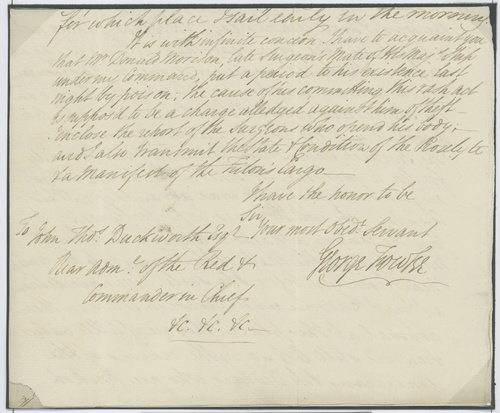 for which place I sail early in the morning
It is with infinite concern I have to acquaint you
that Mr Donald Morison, late Surgeon's Mate of His Maj.s Ship
under my Command, put a period to his existence last
night by poison; the cause of his committing this rash act
is supposed to be a charge alledged against him, of theft—
I enclose the report of the Surgeons who opened his body;
and I also transmit the State & Condition of the
& a Manifest of the Cargo—
I have the honor to be
Sir,
Your most Obedt. Servant
George
To John Thos. Duckworth Esqr
Rear Adml. of the Red &
Commander in Chief
&c. &c. &c—